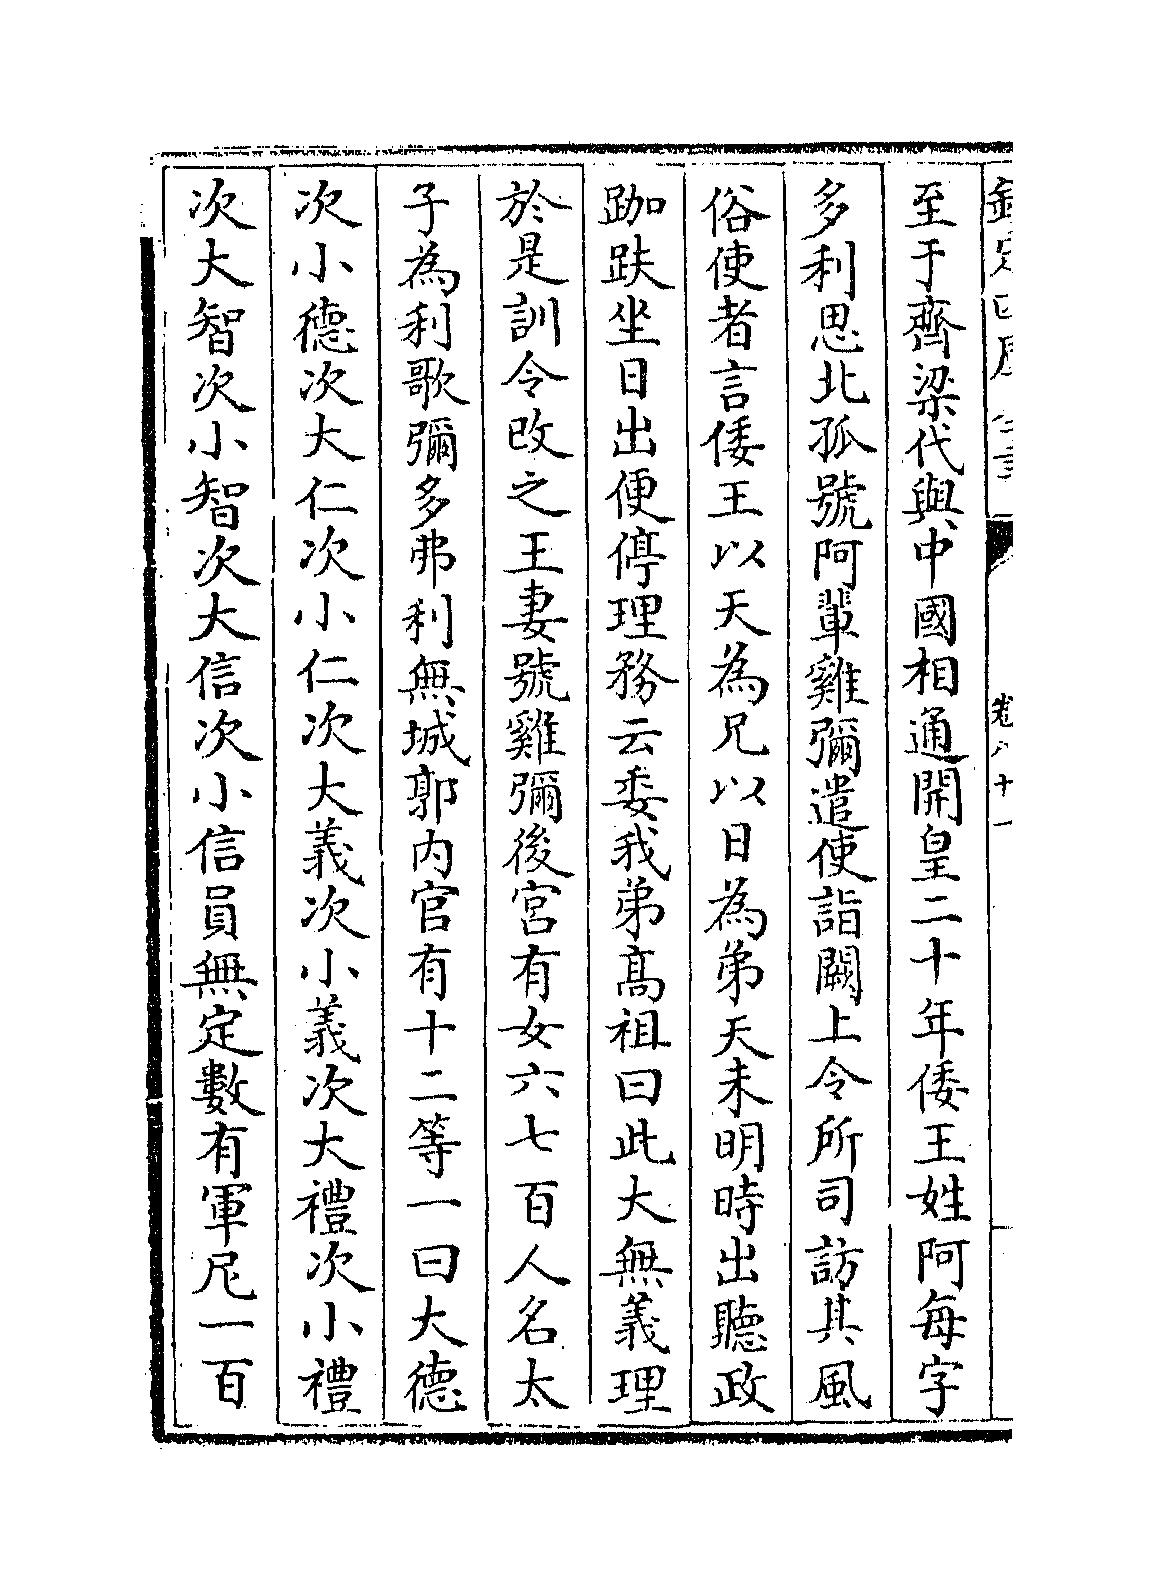 至于齊梁代與中國相通開皇二十年倭王姓阿每字
多利思北孤號阿輩雞彌遣使詣闕上令所司訪其風
俗使者言倭王以天為兄以日為弟天未明時出聽政
跏趺坐日出便停理務云委我弟高祖曰此大無義理
於是訓令改之王妻號雞彌後宮有女六七百人名太
子為利歌彌多弗利無城郭內官有十二等一曰大德
次小德次大仁次小仁次大義次小義次大禮次小禮
次大智次小智次大信次小信員無定數有軍尼一百
卷八十一